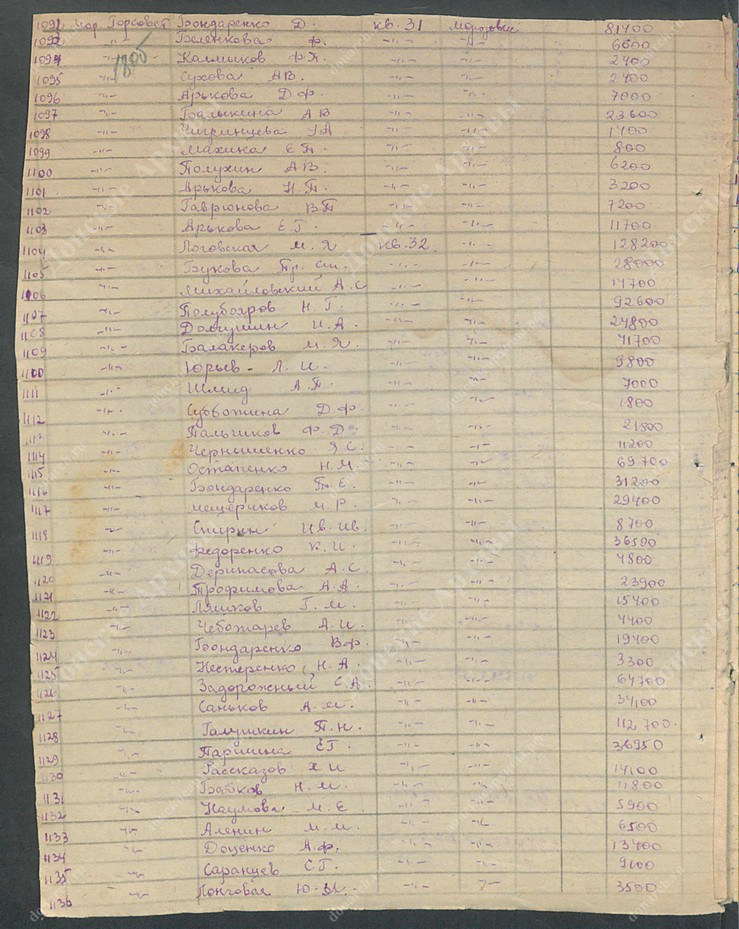 1092 Мор Горсовет Бондаренко Д. кв. 31 Морозовск 81400
1093 -"- Беленкова Ф. -"- -"- 6600
1094 -"- 1805 Калмыков Ф.П. -"- -"- 2400
1095 -"- Сухова А В. -"- -"- 2400
1096 -"- Арькова Д Ф. -"- -"- 7000
1097 -"- А В -"- -"- 23600
1098 -"- Чигринцева -"- -"- 1400
1099 -"- Махина Е П -"- -"- 800
1100 -"- Полухин А В. -"- -"- 6200
1101 -"- Арькова Н.П. -"- -"- 3200
1102 -"- Гаврюнова В.П -"- -"- 7200
1103 -"- Арькова Е.Г. -"- -"- 11700
1104 -"- Логовская М. Я кв. 32. -"- 128200
1105 -"- Букова Пр. Ст. -"- -"- 28000
1106 -"- Михайловский А.С -"- -"- 14700
1107 -"- Полубояров Н.Г. -"- -"- 92600
1108 -"- Долгушин И.А. -"- -"- 24800
1109 -"- Балакеров М. Я. -"- -"- 41700
1100 -"- Юрьев Л. И. -"- -"- 9800
1111 -"- Шмид А.П. -"- -"- 7000
1112 -"- Субботина Д.Ф. -"- -"- 1800
1113 -"- Пальчиков Ф.Д. -"- -"- 21800
1114 -"- Чернышенко З.С. -"- -"- 11200
1115 -"- Остапенко Н.М. -"- -"- 69700
1116 -"- Бондаренко П.Е. -"- -"- 31200
1117 -"- Мещериков М.Р. -"- -"- 29400
1118 -"- Спирин Ив. Ив. -"- -"- 8700
1119 -"- Федоренко К.И. -"- -"- 36500
1120 -"- Дерипасова А.С -"- -"- 4800
1121 -"- Трофимова А.А. -"- -"- 23900
1122 -"- Ляшков Г.М. -"- -"- 15400
1123 -"- Чеботарев А.И. -"- -"- 4400
1124 -"- Бондаренко В.Ф. -"- -"- 19400
1125 -"- Нестеренко Н.А. -"- -"- 3300
1126 -"- Задорожный С.Д. -"- -"- 64700
1127 -"- Саньков А.М. -"- -"- 34100
1128 -"- Галушкин П.Н. -"- -"- 112700
1129 -"- Паршина Е.Г. -"- -"- 36950
1130 -"- Рассказов Х И -"- -"- 14100
1131 -"- Бабков Н.М. -"- -"- 11800
1132 -"- Наумова М.Е. -"- -"- 5900
1133 -"- Аленин М.М. -"- -"- 6500
1134 -"- Доценко А.Ф. -"- -"- 13400
1135 -"- Саранцев С.Г. -"- -"- 9600
1136 -"- Лонговая Ю.М. -"- -"- 3500